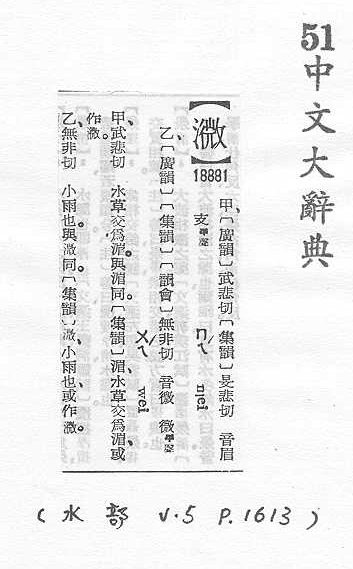 51中文大辭典
【溦】18881
甲、〔廣韻〕武悲切〔集韻〕旻悲切 音眉
支平聲 ㄇㄟˊ mei
乙、〔廣韻〕〔集韻〕〔韻會〕無非切 音微 微平聲
ㄨㄟˊ wei
甲、武悲切 水草交爲溦。與湄同。〔集韻〕湄、水草交爲湄、或
作溦。
乙、無非切 小雨也。與溦同。〔集韻〕溦、小雨也、或作溦。
(水部 v.5 P.1613)